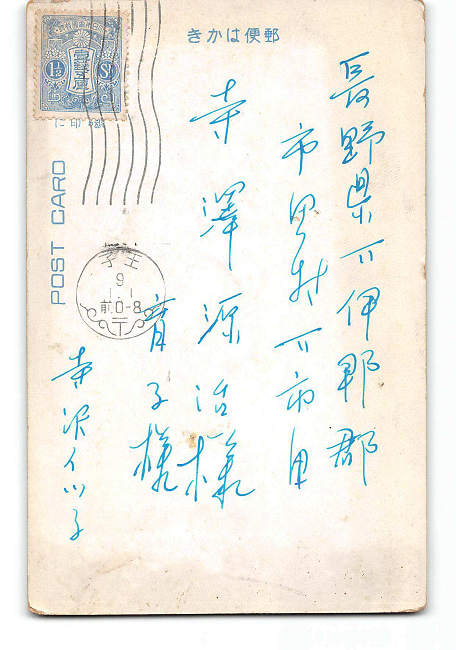 郵便はかき
長野県下伊那郡
市田村下市田
寺澤源治様
育子様
寺沢
POST CARD
壹銭五厘
1½ Sn
王子
9
1.1
前0-8